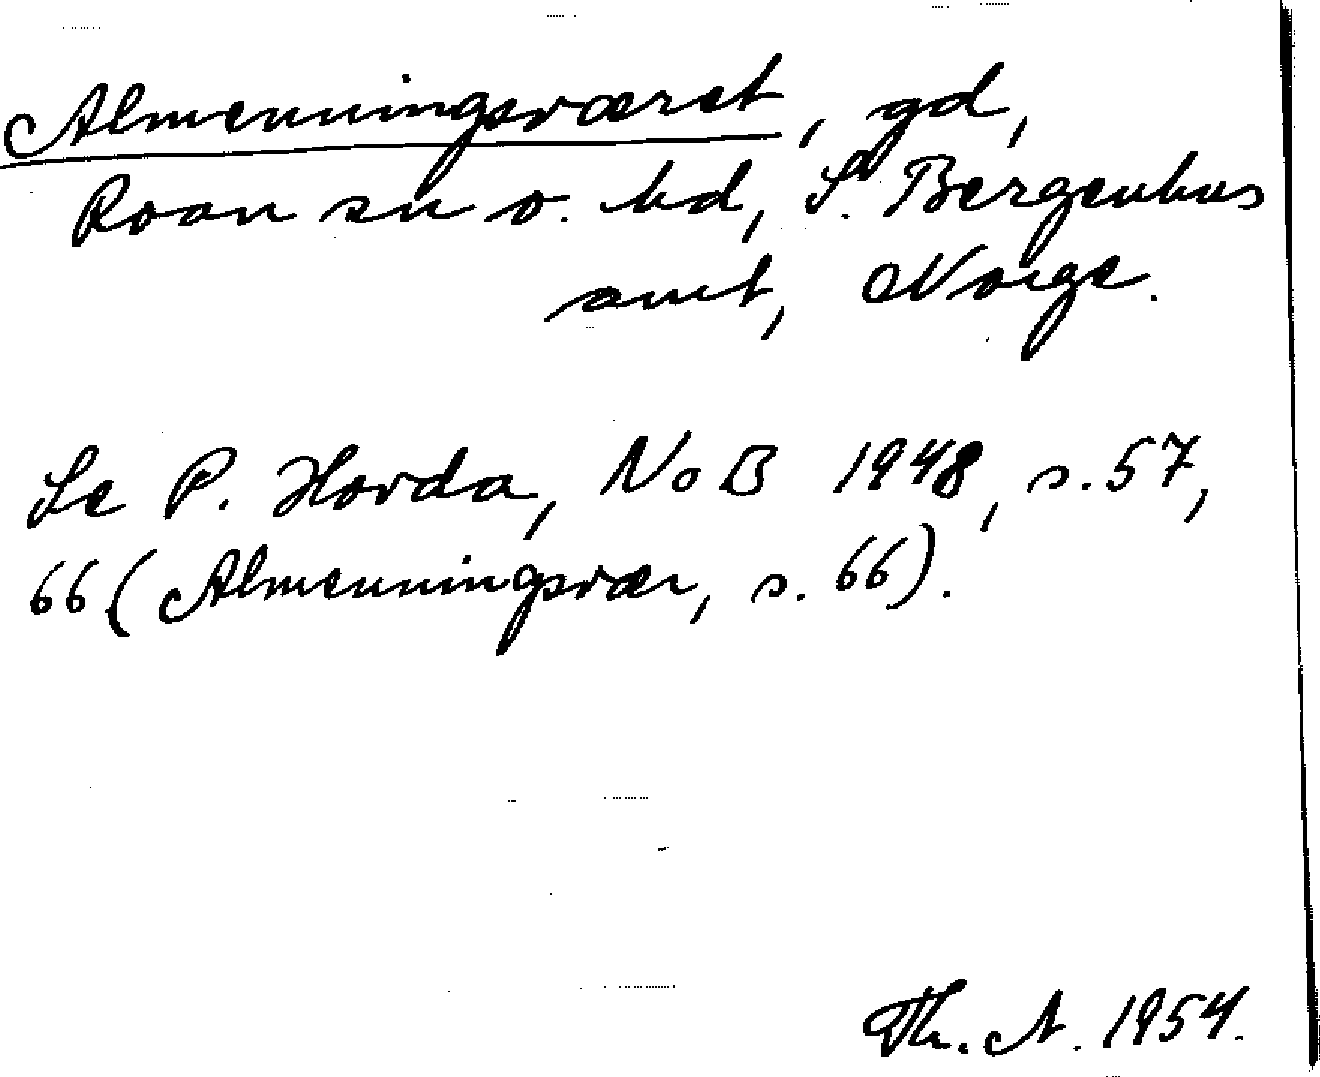 Almenningsværet, gd,
Roan sn o. hd, S. Bergenhus
amt, Norge.
Se P. Hovda, NoB 1948, s. 57,
66 (Almenningsvær, s. 66).
Th. A. 1954.